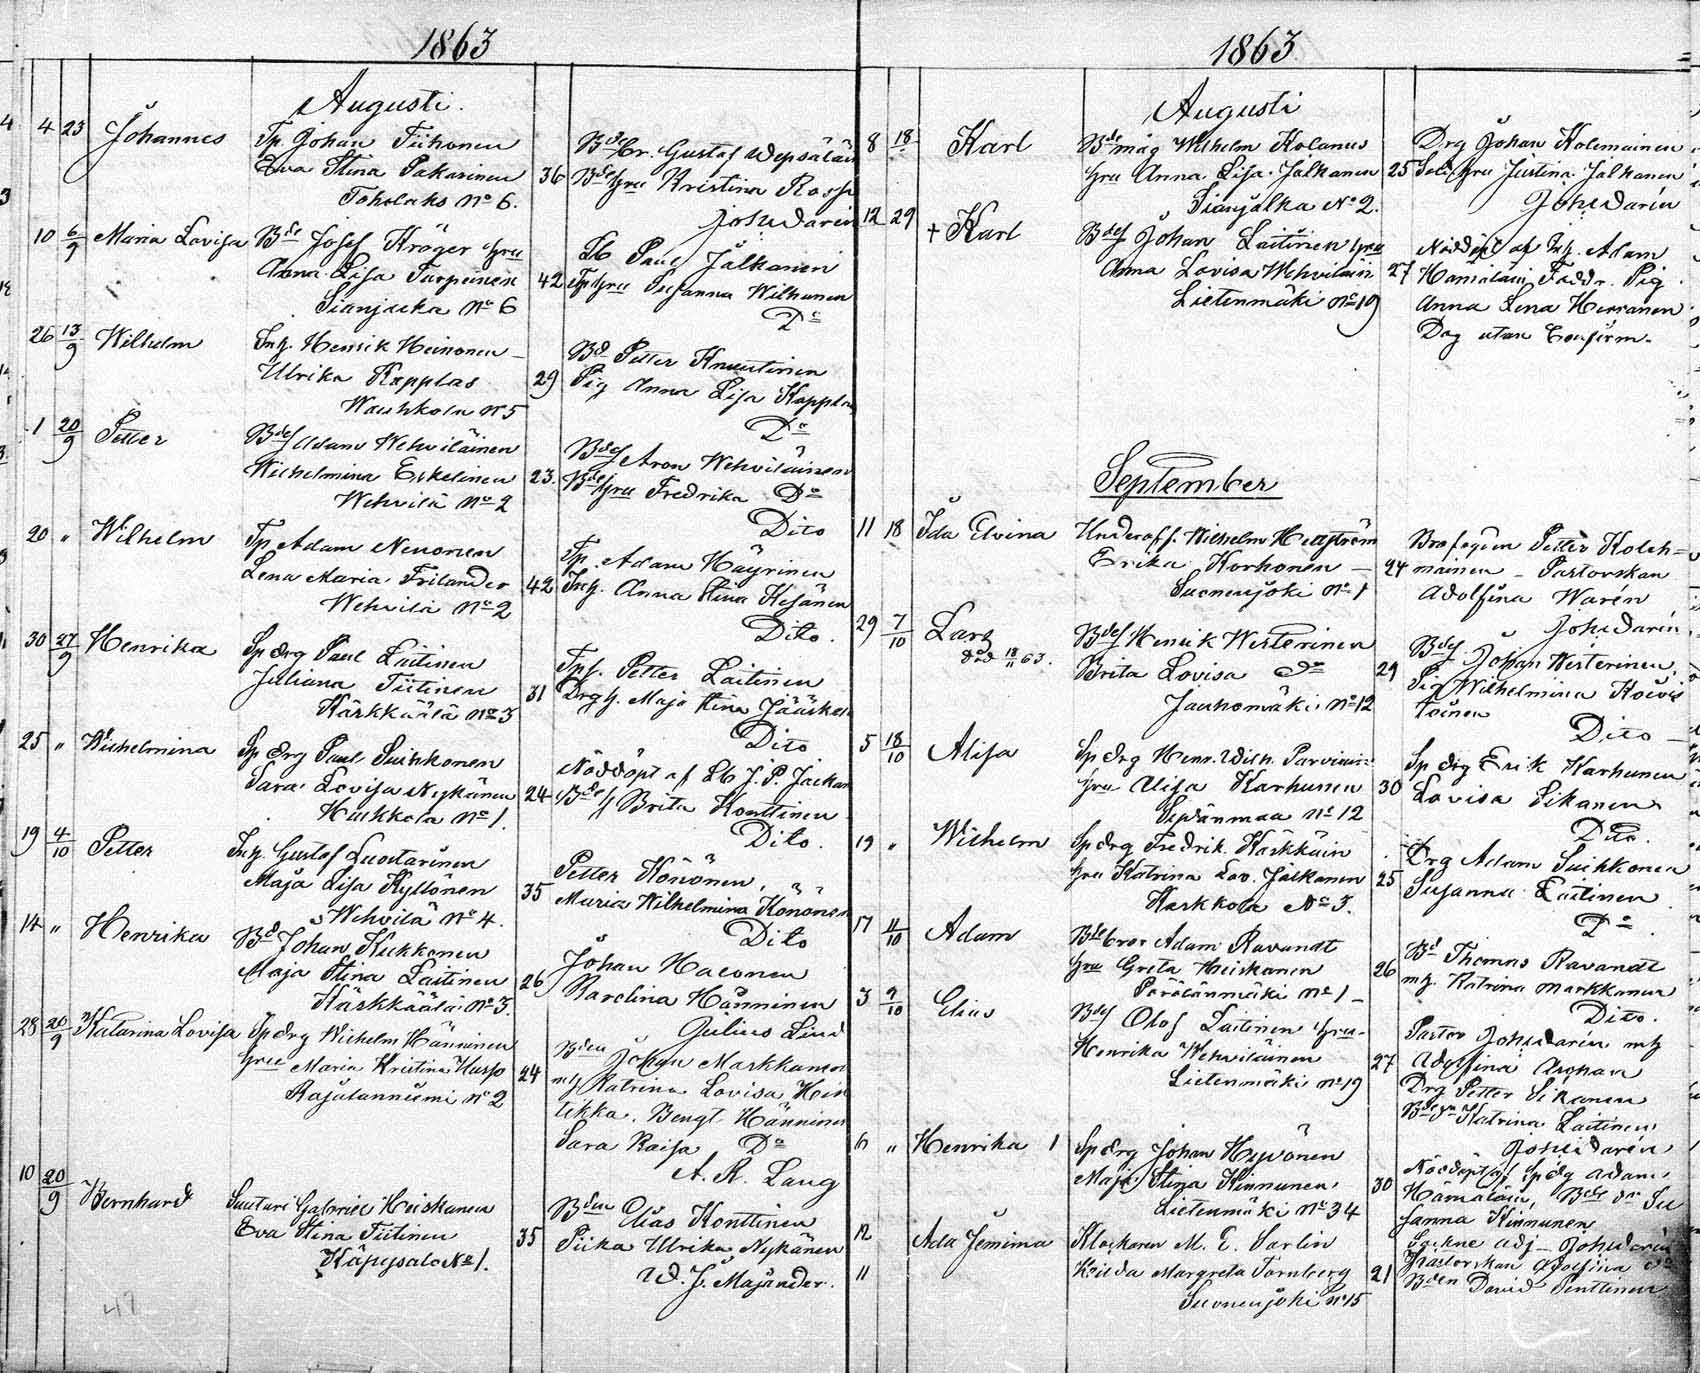 1863
Augusti.
4 23 Johannes Tp. Johan Tiihonen
Eva Stina Pakarinen 36
Toholaks No 6.
Bde Br. Gustaf Wepsäläi
Bde hru Kristina Ross
Johsdarin
10 6/9 Maria Lovisa Bde Josef Kröger hru
Anna Lisa Turpeinen 42
Sianjacka No 6
Lb Paul Jälkanen
Tp hru Susanna Wilhunen
Do
26 13/9 Wilhelm Inh. Henrik Heinonen
Ulrika Kopplas 29
Wauhkola No 5
Bd Petter Knuutinen
Pig Anna Lisa Koppla
Do
1 20/9 Petter Bdes Adam Wehviläinen
Wilhelmina Eskelinen 23.
Wehvilä No 2
Bdes Aron Wehviläinen
Bde hru Fredrika Do
Dito
20 " Wilhelm Tp Adam Neuonen
Lena Maria Frilander 42
Wehvilä No 2
Tp. Adam Häyrinen
Inh. Anna Stina Kejänen
Dito.
30 27/9 Henrika Sp drg Paul Laitinen
Juliana Tiitinen 31
Kärkkäälä No 3
Tpf. Petter Laitinen
Drg h. Maja Stina Jääske
Dito
25 " Wilhelmina Sp drg Paul Suihkonen
Sara Lovisa Nykänen 24
Huhkola No 1.
Nöddöpt af Lb J. P. Jälkan
Brita Konttinen
Dito.
19 4/10 Petter Inh. Gustaf Luostarinen
Maja Lisa Kyllönen 35
Wehvilä No 4.
Petter Könönen,
Maria Wilhelmina Könönen
Dito
14 " Henrika Bd Johan Kukkonen
Maja Stina Laitinen 26
Kärkkäälä No 3.
Johan Halonen
Karolina Hänninen
Julius Lind
28 20/9 Katarina Lovisa Sp drg Wilhelm Hänninen
hru Maria Kristina Husso 24
Rajalanniemi No 2
Bden Johan Markkanen
mh Katrina Lovisa Hin
tikka. Bengt Hänninen
Sara Raisa Do
A. R. Lang
10 20/9 Bernhard Suutari Gabriel Heiskanen
Eva Stina Tiitinen 35
Käpysalo No 1.
Bden Elias Konttinen
Piika Ulrika Nykänen
Ad. J. Majander.
47
1863
Augusti
8 18 Karl Bde måg Wilhelm Kolanus
hru Anna Lisa Jälkanen 25
Sianjalka No 2.
Drg Johan Kolemainen
hru Justina Jälkanen
Johsdarin
12 29 + Karl Bdes Johan Laitinen hru
Anna Lovisa Wehviläin 27
Lietenmäki No 19
Nöddöpt af Inh. Adam
Hämäläin Faddr. Pig
Anna Lena Herranen
Dog utan Confirm.
September
11 18 Ida Elvina Underoff. Wilhelm Hedström
Erika Korhonen 24
Suonenjoki No 1
Petter Koleh=
mainen _ Pastorskan
Adolfina Warén
Johsdarin
29 7/10 Lars Bdes Henrik Westerinen
död 18/11 63. Brita Lovisa Do 29
Jauhomäki No 12
Bdes. Johan Westerinen
Pig Wilhelmina Koivis
toinen
Dito
5 18/10 Alisa Sp drg Henr. Wilh. Parviain
hru Alisa Karhunen 30
Sydänmaa No 12
Sp drg Erik Karhunen
Lovisa Sikanen
Dito.
19 " Wilhelm Sp drg Fredrik Kärkkäin
hru Katrina Lov. Jälkanen 25
Karkkola No 3.
Drg Adam Suihkonen
Susanna Laitinen
Do
17 11/10 Adam Bde bror Adam Ravandt
hru Greta Heiskanen 26
Pörölänmäki No 1
Bd Thomas Ravandt
mh. Katrina Markkanen
Dito.
3 9/10 Elias Bdes Olof Laitinen hru
Henrika Wehviläinen 27
Lietenmäki No 19
Pastor Johsdarin mh
Adolfina Aschan
Drg Petter Sikanen
Katrina Laitinen
Johsdarén
6 " Henrika 1 Sp drg Johan Hyvönen
Maja Stina Kinnunen 30
Lietenmäki No 34
Nöddöpt af Sp dg Adam
Hämäläin, Bde dr Su
sanna Kinnunen
12 Ada Jemima Klockaren M. E. Sarlin
11 Hilda Margreta Tornberg 21
Suonenjoki No 15
Sockne adj. Johsdarin
Pastorskan Adolfina Do
Bden David Penttinen